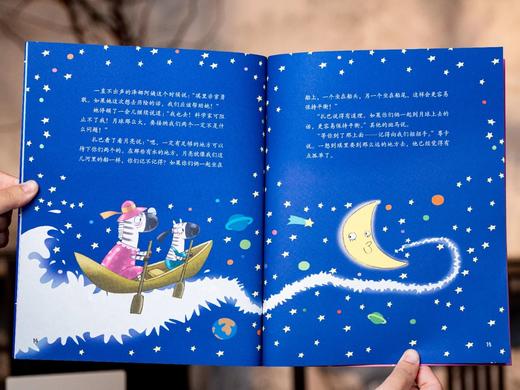 一直不出声的泽娜阿姨这个时候说：“琪里非常勇
敢。如果她这次想去历险的话，我们应该帮助她！”
她停顿了一会儿继续说道：“我也去！科学家可以
到月球上去的。月球那么大，要接纳我们两个一定不是什
么问题！”
扎巴看了看月亮说：“嗯，一定有足够的地方可以
待下你们两个的，在那些有水的地方，月亮就像我们这
儿河里的船一样，你们记不记得？如果你们俩一起坐在
船上，一个坐在船头，另一个坐在船尾，这样会更容易
保持平衡！”
“扎巴说得有道理。如果你们俩一起到月球上去的
话，更容易保持平衡。”其他的斑马说。
“等你到了那上面——记得向我们招招手。”
说。一想到琪里要到那么远的地方去，他已经觉得有
点孤单了。
14
15